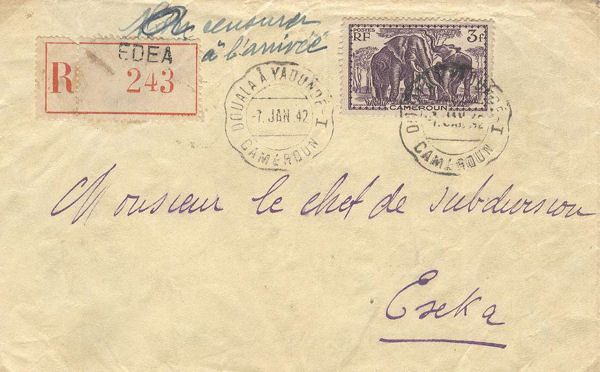 à censurer
à l'arrivée
EDEA
R 243
DOUALA À YAOUNDÉ-I
-7. JAN 42
CAMEROUN
POSTES
RF
3f
CAMEROUN
DOUALA
-7. JAN 42
CAMEROUN
Monsieur le chef de subdivision
Eseka